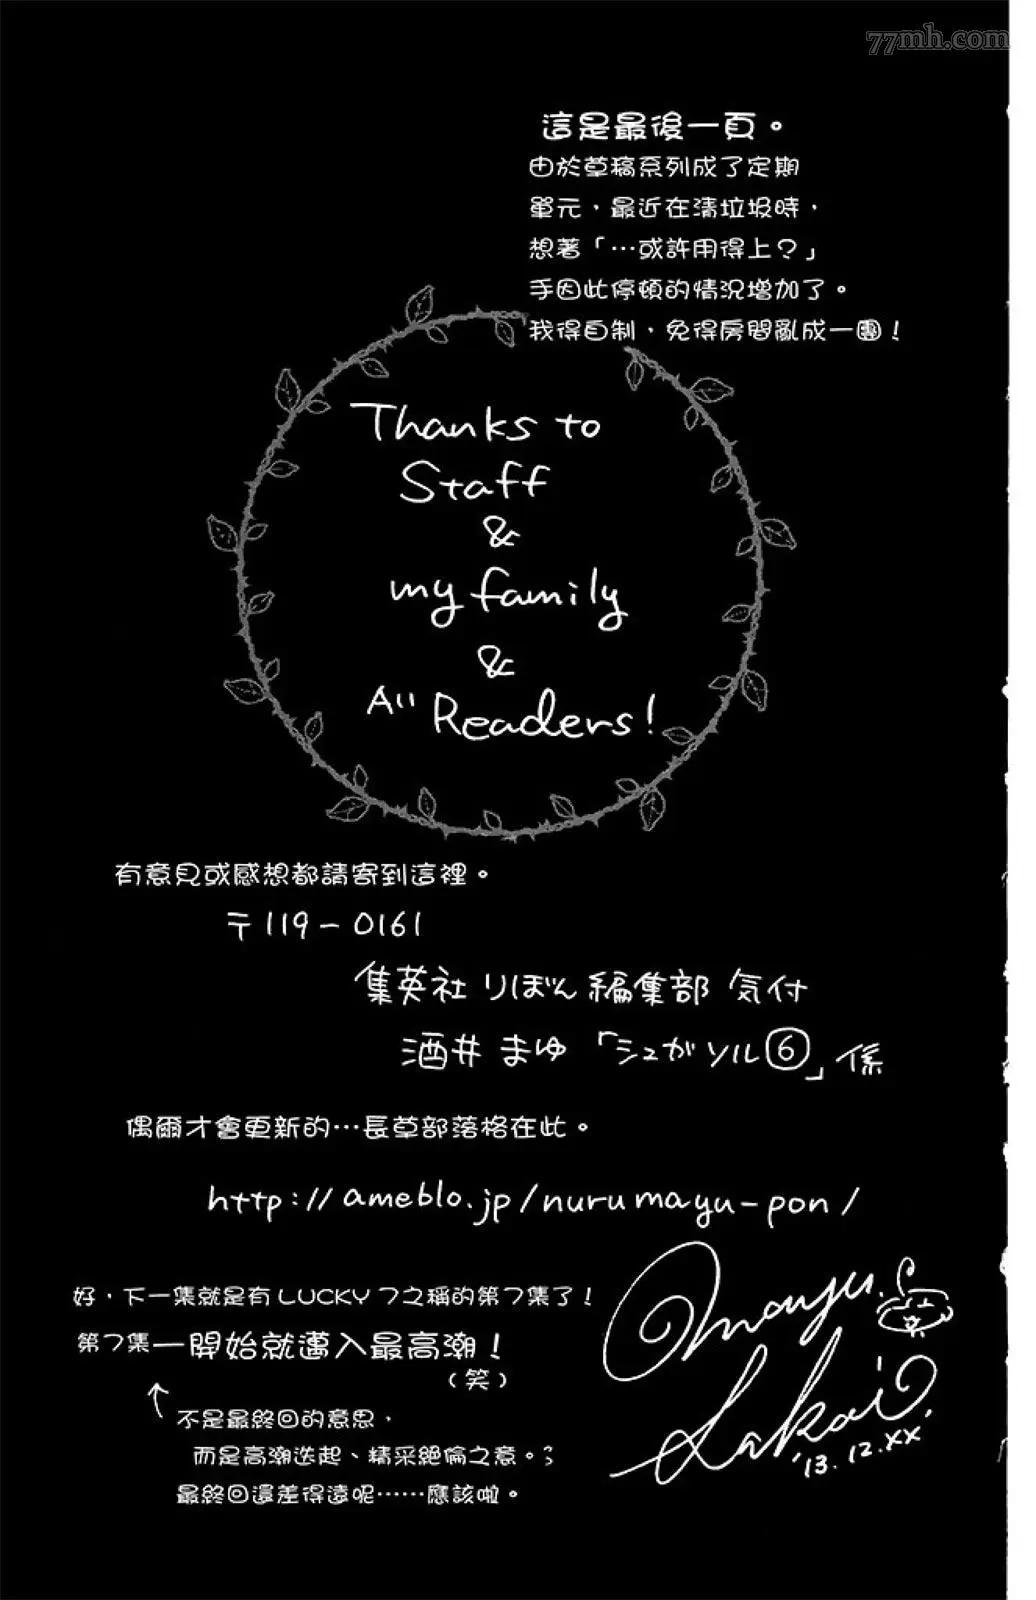 77mh.com
這是最後一頁。
由於草稿系列成了定期
單元，最近在清垃圾時，
想著「…或許用得上？」
手因此停頓的情況增加了。
我得自制，免得房間亂成一團！
Thanks to
Staff
&
my family
&
All Readers!
有意見或感想都請寄到這裡。
〒119-0161
集英社 りぼん編集部 気付
酒井 まゆ 「シュガソル⑥」係
偶爾才會更新的…長草部落格在此。
http://ameblo.jp/nurumayu-pon/
好，下一集就是有LUCKY 7之稱的第7集了！
第7集一開始就邁入最高潮！
（笑）
不是最終回的意思，
而是高潮迭起、精采絕倫之意。
最終回還差得遠呢……應該啦。
Mayu
Sakai
'13.12.XX